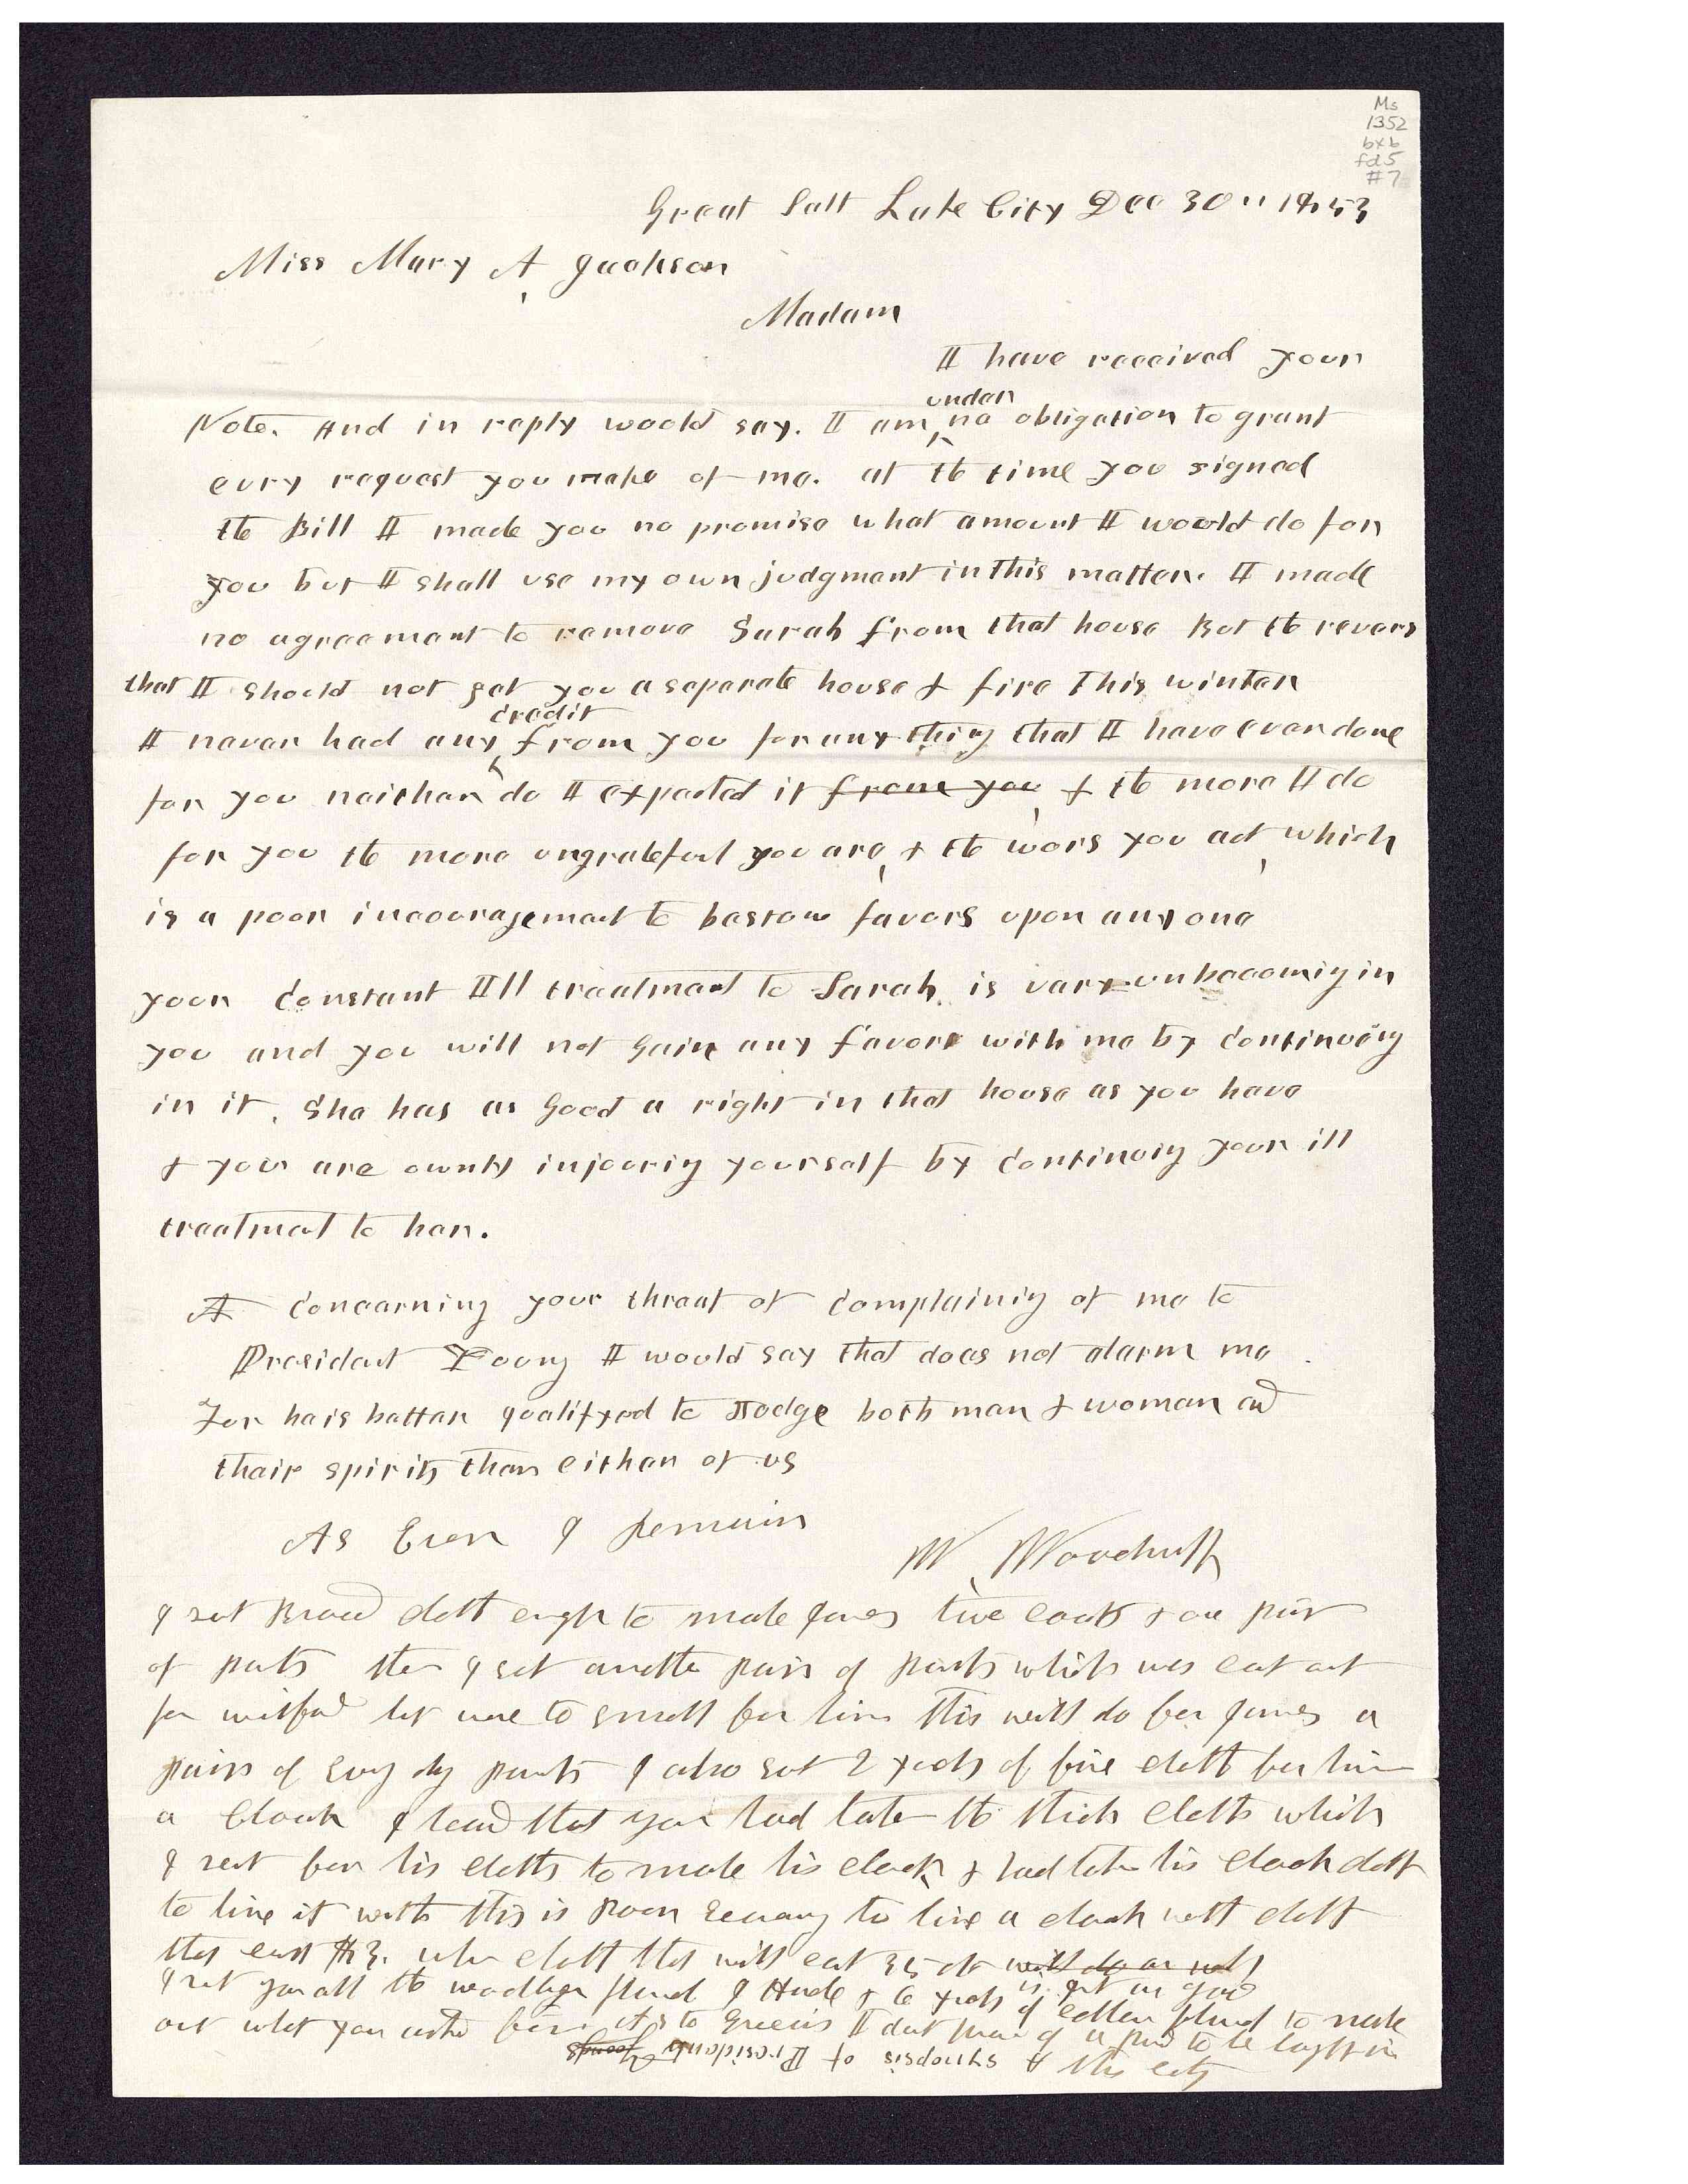 Ms
1352
bx 6
fd 5
#7
Great Salt Lake City Dec 30th 1853
Miss Mary A Jackson
Madam
I have received your
under
Note. And in reply would say. I am no obligation to grant
evry request you make of me. at the time you signed
the Bill I made you no promise what amount I would do for
you but I shall use my own judgment in this matter. I made
no agreement to remove Sarah from that house But the revers
that I should not get you a separate house & fire this winter
credit
I never had any from you for any thing that I have ever done
for you neither do I expected it from you & the more I do
for you the more ungrateful you are, & the wors you act, which
is a poor incouragement to bestow favors upon any one
your constant Ill treatment to Sarah is very unbecoming in
you and you will not gain any favors with me by continuing
in it. She has as good a right in that house as you have
& your are ownly injuring yourself by continuing your ill
treatment to her.
A concerning your threat of complaining of me to
President Young I would say that does not alarm me
For he is better qualifyed to Judge both man & woman and
their spirits than either of us
As Ever I Remain
W. Woodruff
I got Broad cloth enough to make James two coats & one pair
of pants then I got another pair of pants which was cut out
for Wilford but were to small for him this will do for James a
pair of evry day pants I also got 2 yards of fine cloth for him
a cloak I learn that you had take the thick cloth which
I sent for his cloths to make his cloak & had take his cloak cloth
to line it with this is Poor economy to line a cloak with cloth
that cost $3. when cloth that will cost 35 cts will do as well
is just as good
I got you all the woollen flanel I Had & 6 yards of cotton flanel to make
out what you wished for it is to Greens I dont know of a yard to be bought in
this city
A synopsis of President Youngs